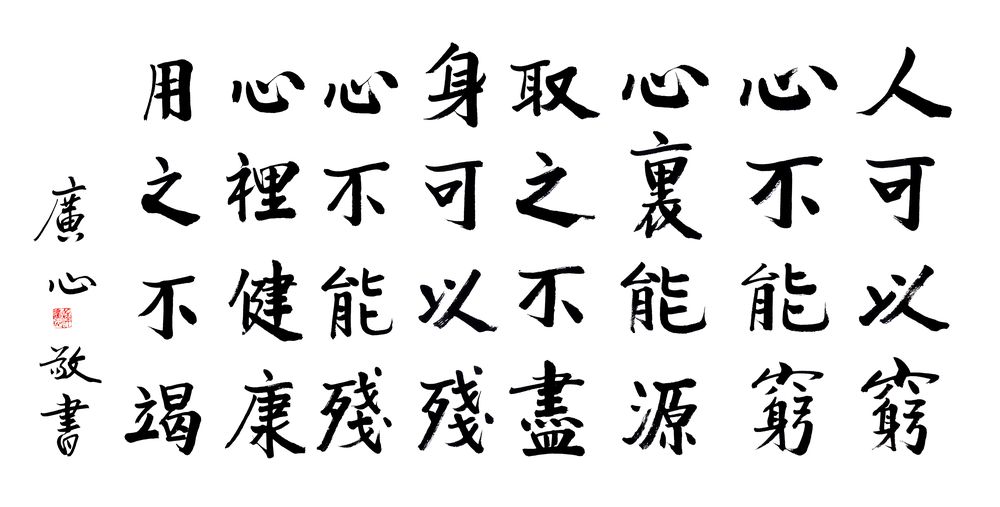 人可以窮
心不能窮
心裏能源
取之不盡
身可以殘
心不能殘
心裡健康
用之不竭
廣心敬書